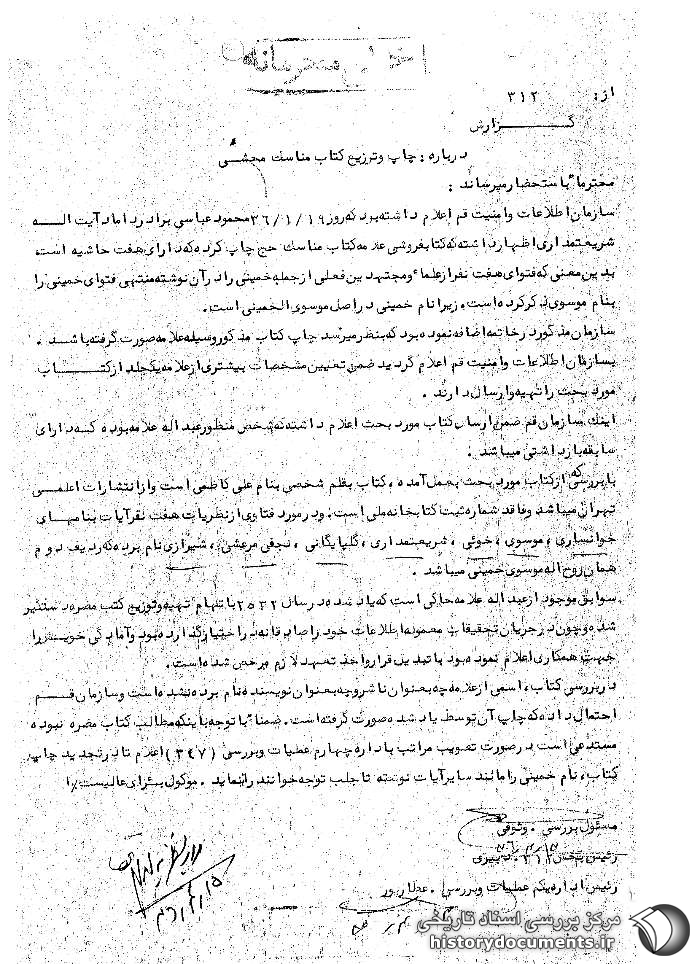 محرمانه
از: ۳۱۲
گزارش
درباره: چاپ و توزیع کتاب مناسک محشّی
محترماً باستحضار میرساند:
سازمان اطلاعات و امنیت قم اعلام داشته بود که روز ۳۶/۱/۱۹ محمود عباسی برادر داماد آیت اله
شریعتمداری اظهار داشته که کتابفروشی علامه کتاب مناسک حج چاپ کرده که دارای هفت حاشیه است،
بدین معنی که فتوای هفت نفر از علماء و مجتهدین فعلی از جمله خمینی را در آن نوشته منتهی فتوای خمینی را
بنام موسوی ذکر کرده است، زیرا نام خمینی در اصل موسوی الخمینی است.
سازمان مذکور در خاتمه اضافه نموده بود که بنظر میرسد چاپ کتاب مذکور وسیله علامه صورت گرفته باشد.
بسازمان اطلاعات و امنیت قم اعلام گردید ضمن تعیین مشخصات بیشتری از علامه یکجلد از کتاب
مورد بحث را تهیه و ارسال دارند.
اینک سازمان قم ضمن ارسال کتاب مورد بحث اعلام داشته که شخص منظور عبداله علامه بوده که دارای
سابقه بازداشتی میباشد.
با بررسی که از کتاب مورد بحث بعمل آمده، کتاب بقلم شخصی بنام علی کاظمی است و از انتشارات اعلمی
تهران میباشد و فاقد شماره ثبت کتابخانه ملی است. و در مورد فتاوی از نظریات هفت نفر آیات بنامهای
خوانساری، موسوی، خوئی، شریعتمداری، گلپایگانی، نجفی مرعشی، شیرازی نام برده که ردیف دوم
همان روح اله موسوی خمینی میباشد.
سوابق موجود از عبداله علامه حاکی است که یاد شده در سال ۲۵۳۲ باتهام تهیه و توزیع کتب مضره دستگیر
شده و چون در جریان تحقیقات معموله اطلاعات خود را صادقانه در اختیار گذارده بود و آمادگی خویش را
جهت همکاری اعلام نموده بود با تبدیل قرار و اخذ تعهد لازم مرخص شده است.
در بررسی کتاب، اسمی از علامه چه بعنوان ناشر و چه بعنوان نویسنده نام برده نشده است و سازمان قم
احتمال داده که چاپ آن توسط یاد شده صورت گرفته است. ضمناً با توجه باینکه مطالب کتاب مضره نبوده
مستدعی است در صورت تصویب مراتب باداره چهارم عملیات و بررسی (۳۴۷) اعلام تا در تجدید چاپ
کتاب، نام خمینی را مانند سایر آیات نوشته تا جلب توجه خوانند را ننماید. موکول برای عالیست.
مسئول بررسی. وثوقی
رئیس بخش ۳۱۲. دبیری
رئیس اداره یکم عملیات و بررسی. عطارپور
مرکز بررسی اسناد تاریخی
historydocuments.ir